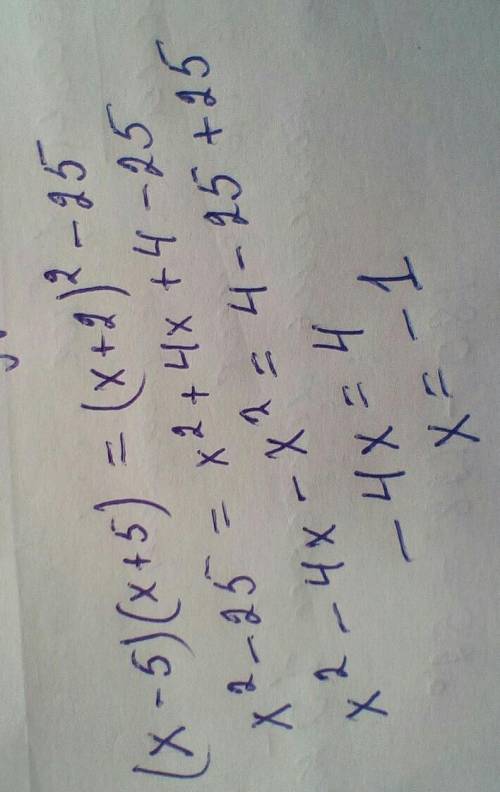 (x-5)(x+5) = (x+2)² - 25
x² - 25 = x² + 4x + 4 - 25
x² - 4x - x² = 4 - 25 + 25
- 4x = 4
x = - 1